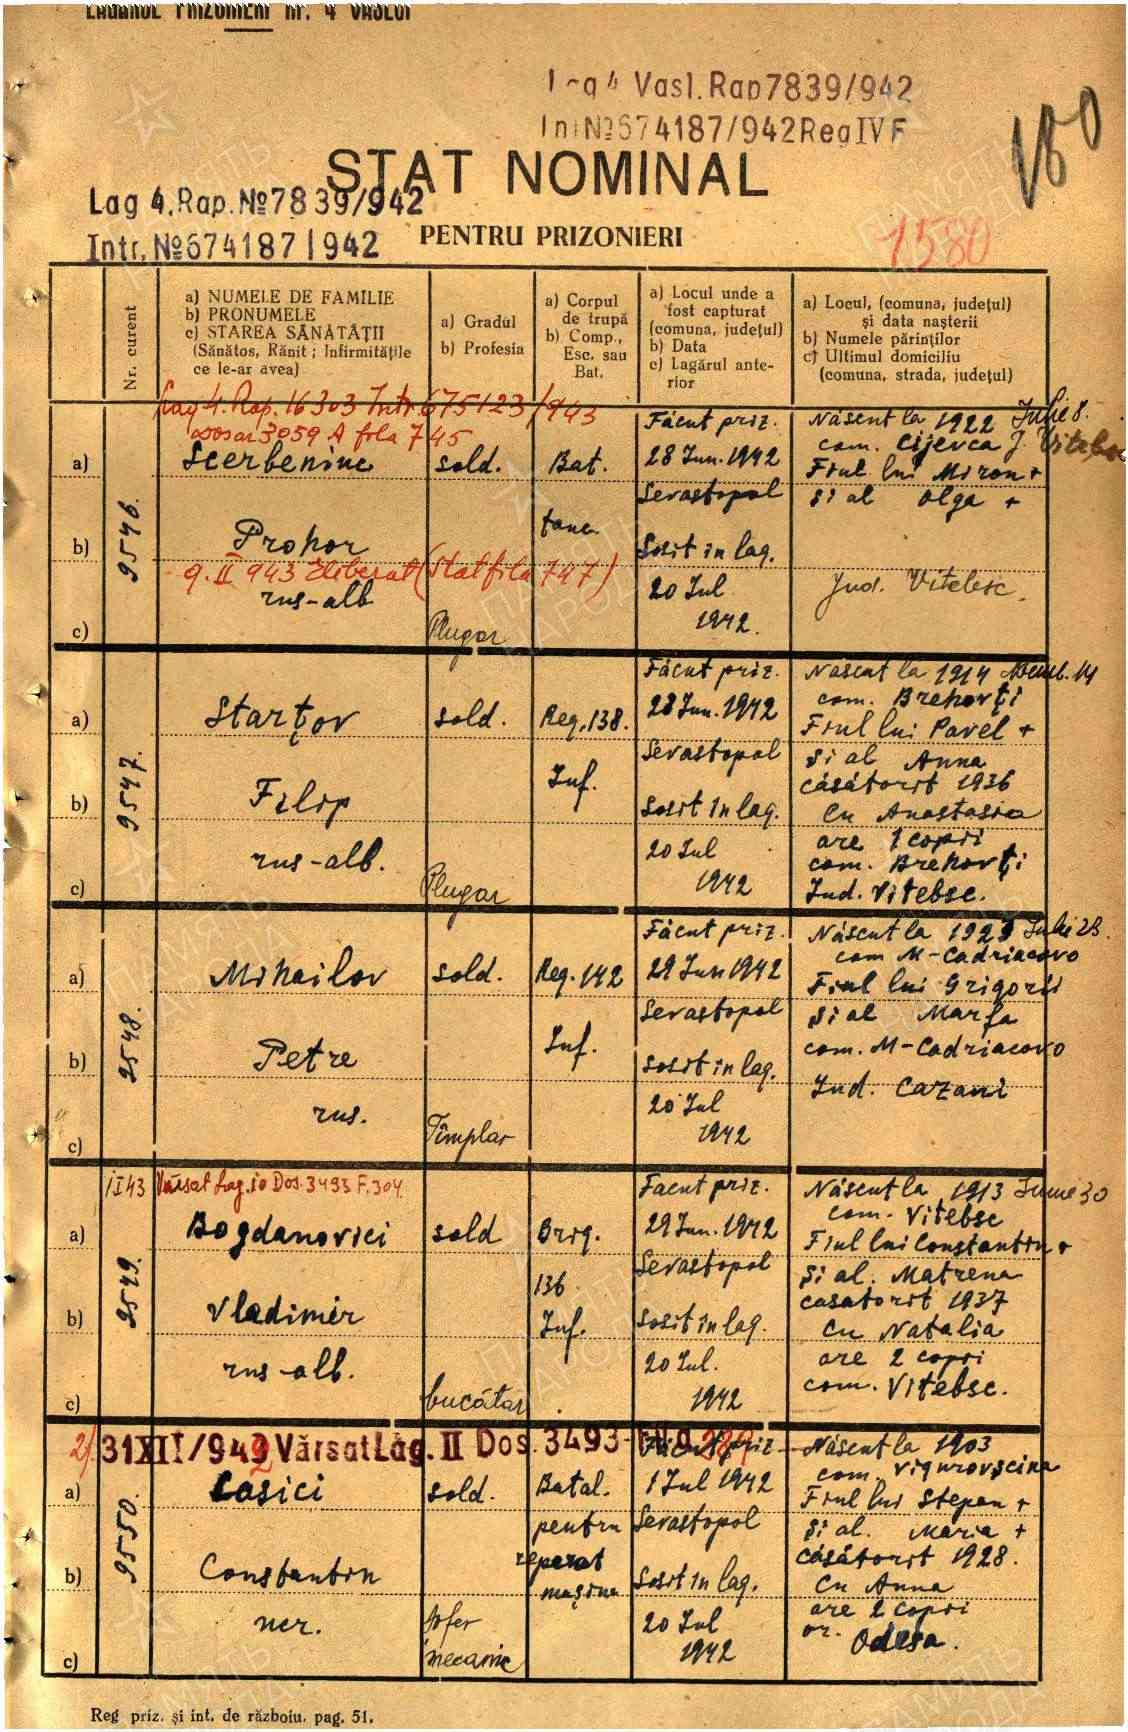 LAGĂRUL PRIZONIERI Nr. 4 VASLUI
Lag 4 Vasl. Rap 7839/942
Int № 674187/942 Reg IV F
180
STAT NOMINAL
Lag 4. Rap. № 7839/942
PENTRU PRIZONIERI
1580
Intr. № 674187/942
Nr. curent
a) NUMELE DE FAMILIE
b) PRONUMELE
c) STAREA SĂNĂTĂȚII
(Sănătos, Rănit ; Infirmitățile
ce le-ar avea)
a) Gradul
b) Profesia
a) Corpul
de trupă
b) Comp.,
Esc. sau
Bat.
a) Locul unde a
fost capturat
(comuna, județul)
b) Data
c) Lagărul ante-
rior
a) Locul, (comuna, județul)
și data nașterii
b) Numele părinților
c) Ultimul domiciliu
(comuna, strada, județul)
Lag 4. Rap. 16303 Intr. 675123/943
Dosar 3059 A fila 745
9546.
a)
b)
c)
Scerbeninc
Prohor
9.II 943 Eliberat (Stat fila 747)
rus-alb
sold.
Plugar
Bat.
tanc.
Făcut priz.
28 Iun. 1942
Sevastopol
Sosit in lag.
20 Iul
1942.
Născut la 1922 Iulie 8.
com. Cijevca J. Vitebsc
Fiul lui Miron +
si al Olga +
Jud. Vitebsc.
9547.
a)
b)
c)
Starțov
Filip
rus-alb.
sold.
Plugar
Reg. 138.
Inf.
Făcut priz.
28 Iun. 1942
Sevastopol
Sosit în lag.
20 Iul
1942
Născut la 1914 14
com. Brehorți
Fiul lui Pavel +
si al Anna
căsătorit 1936
cu Anastasia
are 1 copii
com. Brehorți
Jud. Vitebsc.
9548.
a)
b)
c)
Mihailov
Petre
rus.
sold.
Tîmplar
Reg. 142
Inf.
Făcut priz.
29 Iun 1942
Sevastopol
Sosit în lag.
20 Iul
1942
Născut la Iulie 23.
com M-Cadriacovo
Fiul lui Grigorii
și al Marfa
com. M-Cadriacovo
Jud. Cazani
1 I 43 Vărsat Lag. 10 Dos. 3493 F. 304
9549.
a)
b)
c)
Bogdanovici
Vladimir
rus-alb.
sold
bucătar
Brig.
136
Inf.
Făcut priz.
29 Iun. 1942
Sevastopol
Sosit în lag.
20 Iul.
1942
Născut la 1913 Iunie 30
com. Vitebsc
Fiul lui Constantin +
și al. Matrena
casatorit 1937
cu Natalia
are 2 copii
com. Vitebsc.
2/ 31 XII/942 Vărsat Lag. II Dos. 3493
9550.
a)
b)
c)
Casici
Constantin
ucr.
sold.
șofer
mecanic
Batal.
pentru
reparat
mașine
Făcut priz
1 Iul 1942
Sevastopol
Sosit în lag.
20 Iul
1942
Născut la 1903
com. Vigurovșcina
Fiul lui Stepan +
și al. Maria +
căsătorit 1928.
cu Anna
are 2 copii
or. Odesa.
Reg priz. și int. de războiu. pag. 51.